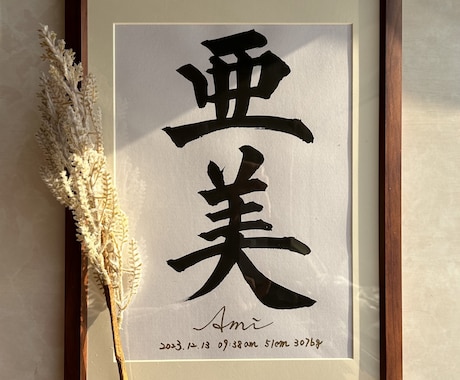 亜美
Ami
2023.12.13 09:58am 51cm 3076g